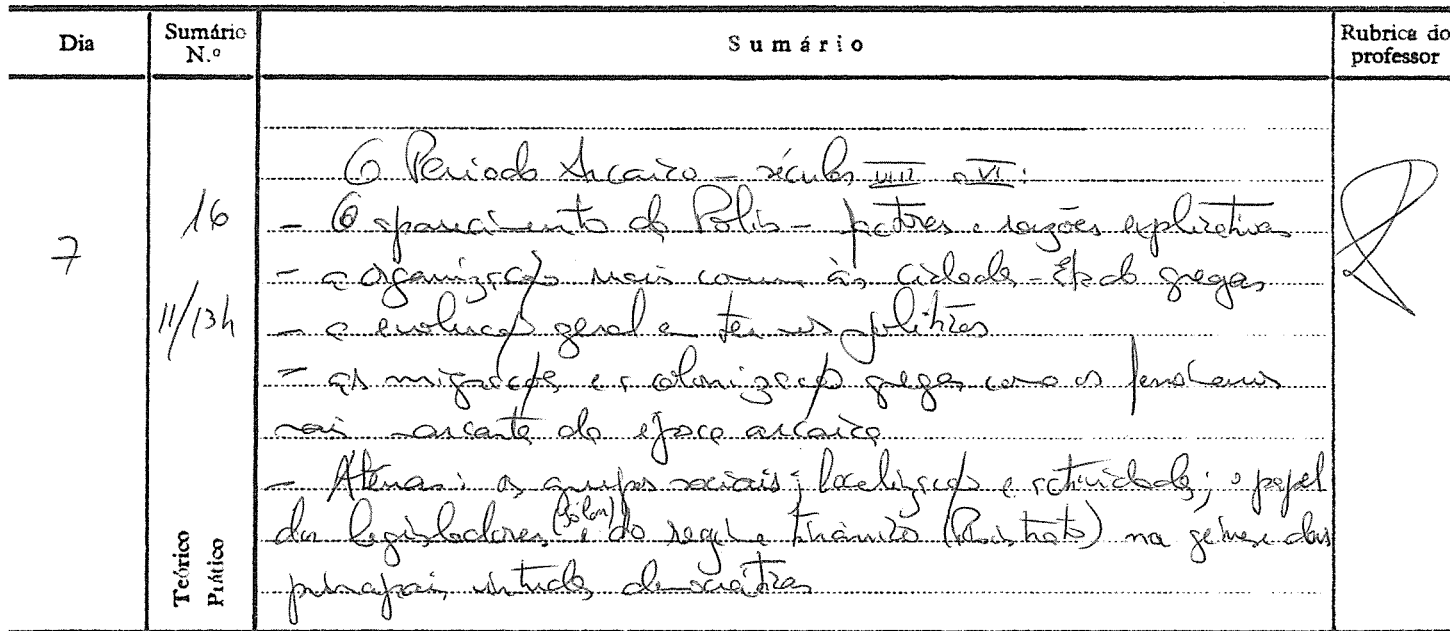 Dia
Sumário N.º
Sumário
Rubrica do professor
7
16
11/13h
Teórico
Prático
O Período Arcaico – séculos VIII a VI:
– O aparecimento da Polis – factores e razões explicativas
– a organização mais comum às cidades-Estado gregas
– a evolução geral em termos políticos
– as migrações e a colonização gregas como os fenómenos
mais marcantes da época arcaica
– Atenas: os grupos sociais; localização e actividade; o papel
dos legisladores (Sólon) e do regime tirânico (Pisístrato) na génese das
principais democráticas